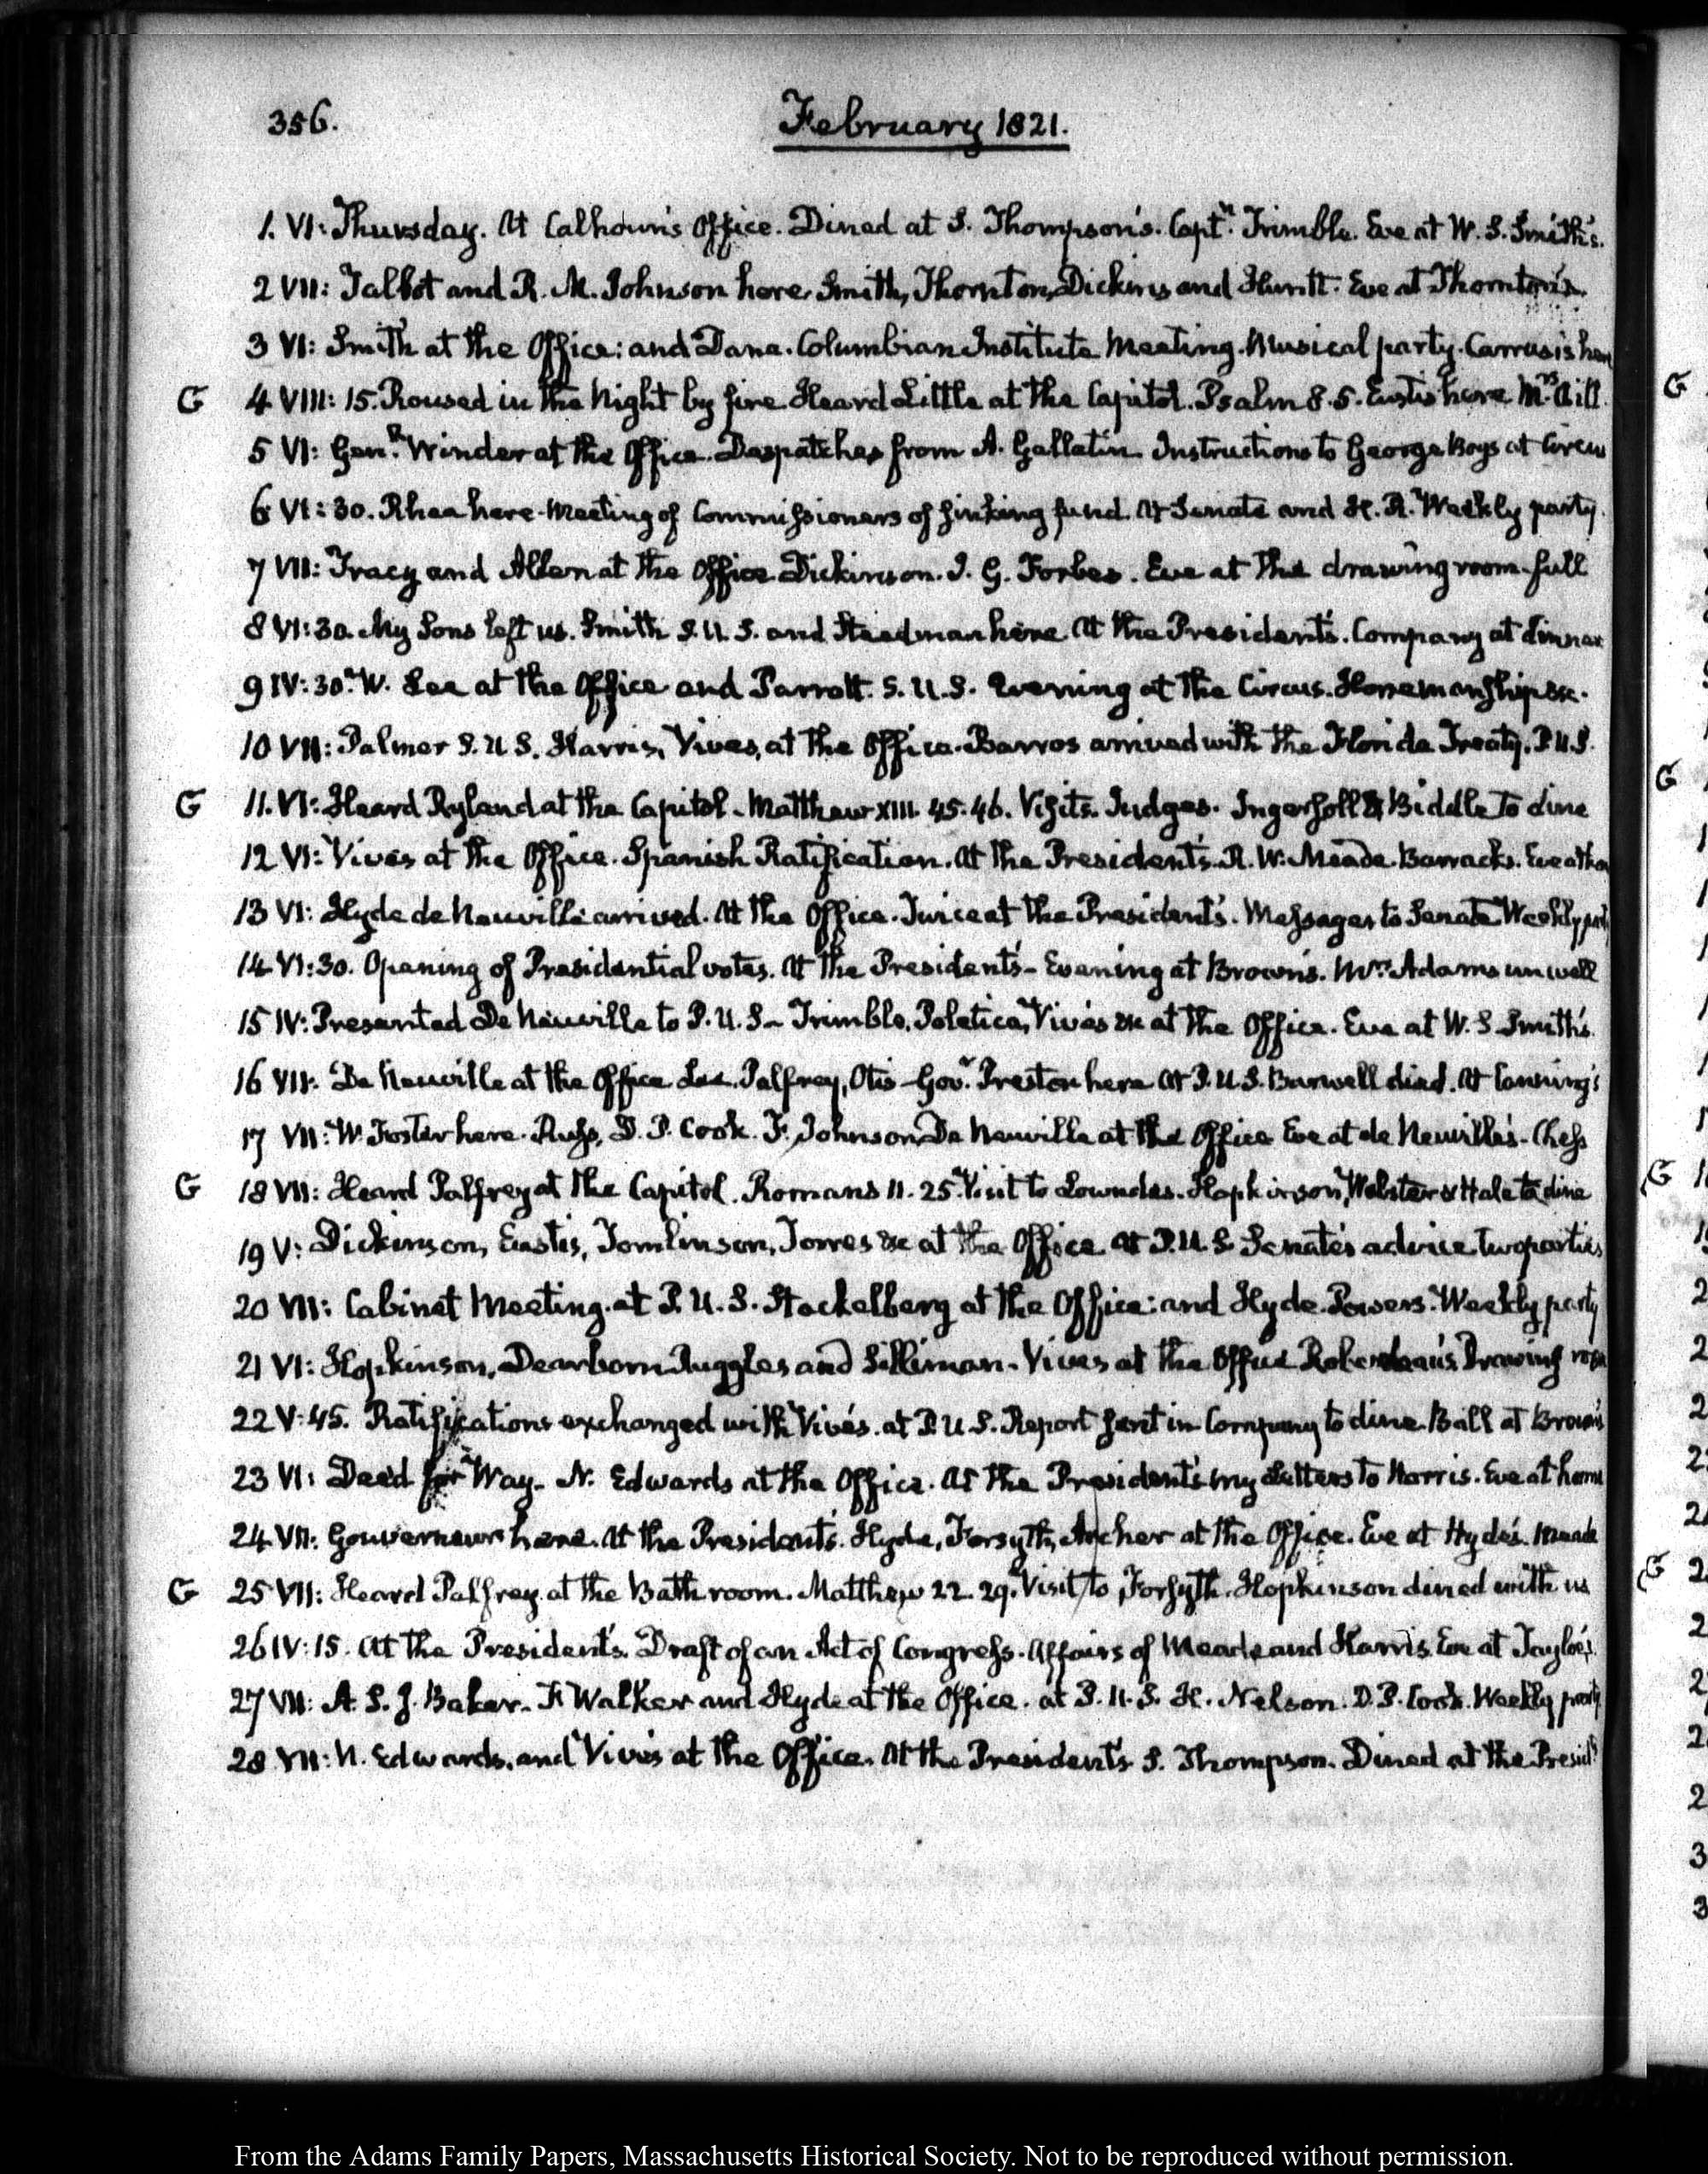 356. February 1821.
1. VI: Thursday. At Calhoun's Office. Dined at S. Thompson's. Captn. Trimble. Eve at W. S. Smith's.
2 VII: Talbot and R. M. Johnson here Smith, Thornton, Dickins and Huntt. Eve at Thornton's.
3 VI: Smith at the Office: and Dana. Columbian Institute Meeting. Musical party. Carusi's
G 4 VIII: 15. Roused in the Night by fire Heard Little at the Capitol. Psalm 8. 5. Eustis here Mrs. A ill.
5 VI: Genl. Winder at the Office. Despatches from A. Gallatin. Instructions to George Boys at Circus
6 VI: 30. Rhea here. Meeting of Commissioners of sinking fund. At Senate and H. R. Weekly party.
7 VII: Tracy and Allen at the Office Dickinson. J. G. Forbes. Eve at the drawing room-full
8 VI: 30. My Sons left us. Smith S. U. S. and Steedman here At the President's. Company at dinner
9 IV: 30. W. Lee at the Office and Parrott. S. U. S. Evening at the Circus. Horsemanship &c.
10 VII: Palmer S. U S. Harris, Vives, at the Office. Barros arrived with the Florida Treaty. P. U. S.
G 11. VI: Heard Ryland at the Capitol. Matthew XIII. 45. 46. Visits. Judges. Ingersoll & Biddle to dine
12 VI: Vives at the Office. Spanish Ratification. At the President's. R. W. Meade. Barracks. Eve at
13 VI: Hyde de Neuville arrived. At the Office. Twice at the President's. Messages to Senate Weekly party
14 VI: 30. Opening of Presidential votes. At the President's- Evening at Brown's. Mrs. Adams unwell
15 IV: Presented De Neuville to P. U. S- Trimble, Poletica, Vives &c at the Office. Eve at W. S Smith's
16 VII. De Neuville at the Office Lee. Palfrey, Otis Govr. Preston here At P. U. S. Burwell died. At Canning's
17 VII: W. Foster here. Russ, D. P. Cook. F. Johnson De Neuville at the Office Eve at de Neuville's- Chess
G 18 VII: Heard Palfrey at the Capitol. Romans 11. 25. Visit to Lowndes. Hopkinson, Webster & Hale to dine
19 V: Dickinson, Eustis, Tomlinson, Torres &c at the Office At P. U. S. Senate's advice two parties
20 VII: Cabinet Meeting. at P. U. S. Stackelberg at the Office: and Hyde. Powers. Weekly party
21 VI: Hopkinson, Dearborn Ruggles and Silliman. Vives at the Office Roberdeau's Drawing room
22 V: 45. Ratifications exchanged with Vives. at P. U S. Report sent in Company to dine Ball at Brown's
23 VI: Deed for Way. N. Edwards at the Office. At the President's my Letters to Harris. Eve at home
24 VII: Gouverneur here. At the President's. Hyde, Forsyth, Archer at the Office. Eve at Hyde's. Meade
G 25 VII: Heard Palfrey at the Bath room. Matthew 22. 29. Visit to Forsyth. Hopkinson dined with us
26 IV: 15. At the President's. Draft of an Act of Congress. Affairs of Meade and Harris. Eve at Tayloe's.
27 VII: A. S. J. Baker. F. Walker and Hyde at the Office. at P. U. S. H. Nelson. D. P. Cook. Weekly party
28 VII: N. Edwards, and Vives at the Office. At the President's S. Thompson. Dined at the Presidt's
From the Adams Family Papers, Massachusetts Historical Society. Not to be reproduced without permission.